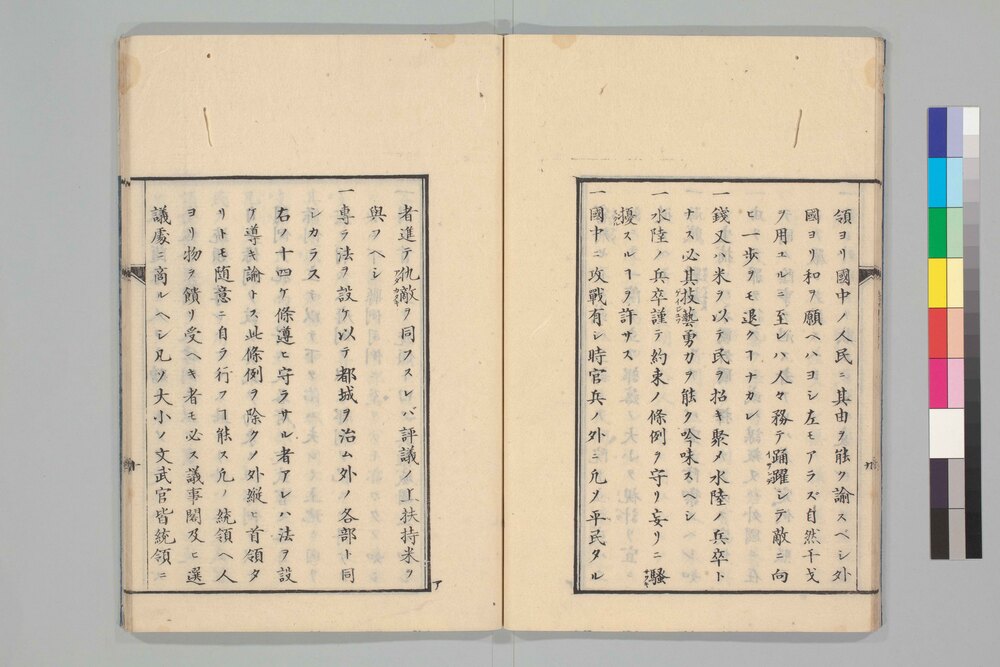 領ヨリ國中ノ人民ニ其由ヲ能ク諭スベシ外
國ヨリ和ヲ願ヘハヨシ左モアラズ自然干戈
ヲ用エルニ至レハ人々務テ踊躍シテ敵ニ向
ヒ一歩ヲモ退クヿナカレ
一錢又ハ米ヲ以テ民ヲ招キ聚メ水陸ノ兵卒ト
ナス必其技藝勇力ヲ能ク吟味スヘシ
一水陸ノ兵卒謹テ約束ノ條例ヲ守リ妄リニ騷
擾スルヿヲ許サス
一國中ニ攻戰有シ時官兵ノ外ニ凢ソ平民タル
者進テ仇敵ヲ同フスレバ評議ノ上扶持米ヲ
與フヘシ
一專ラ法ヲ設ケ以テ都城ヲ治ム外ノ各部ト同
シカラス
右ノ十四ケ條遵ヒ守ラサル者アレハ法ヲ設
ケ導キ諭トス此條例ヲ除クノ外縦ヒ首領タ
リトモ随意ニ自ラ行フヿ能ス凢ノ統領ヘ人
ヨリ物ヲ饋リ受ヘキ者モ必ス議事閣及ヒ選
議處ニ商ルヘシ凡ソ大小ノ文武官皆統領ニ